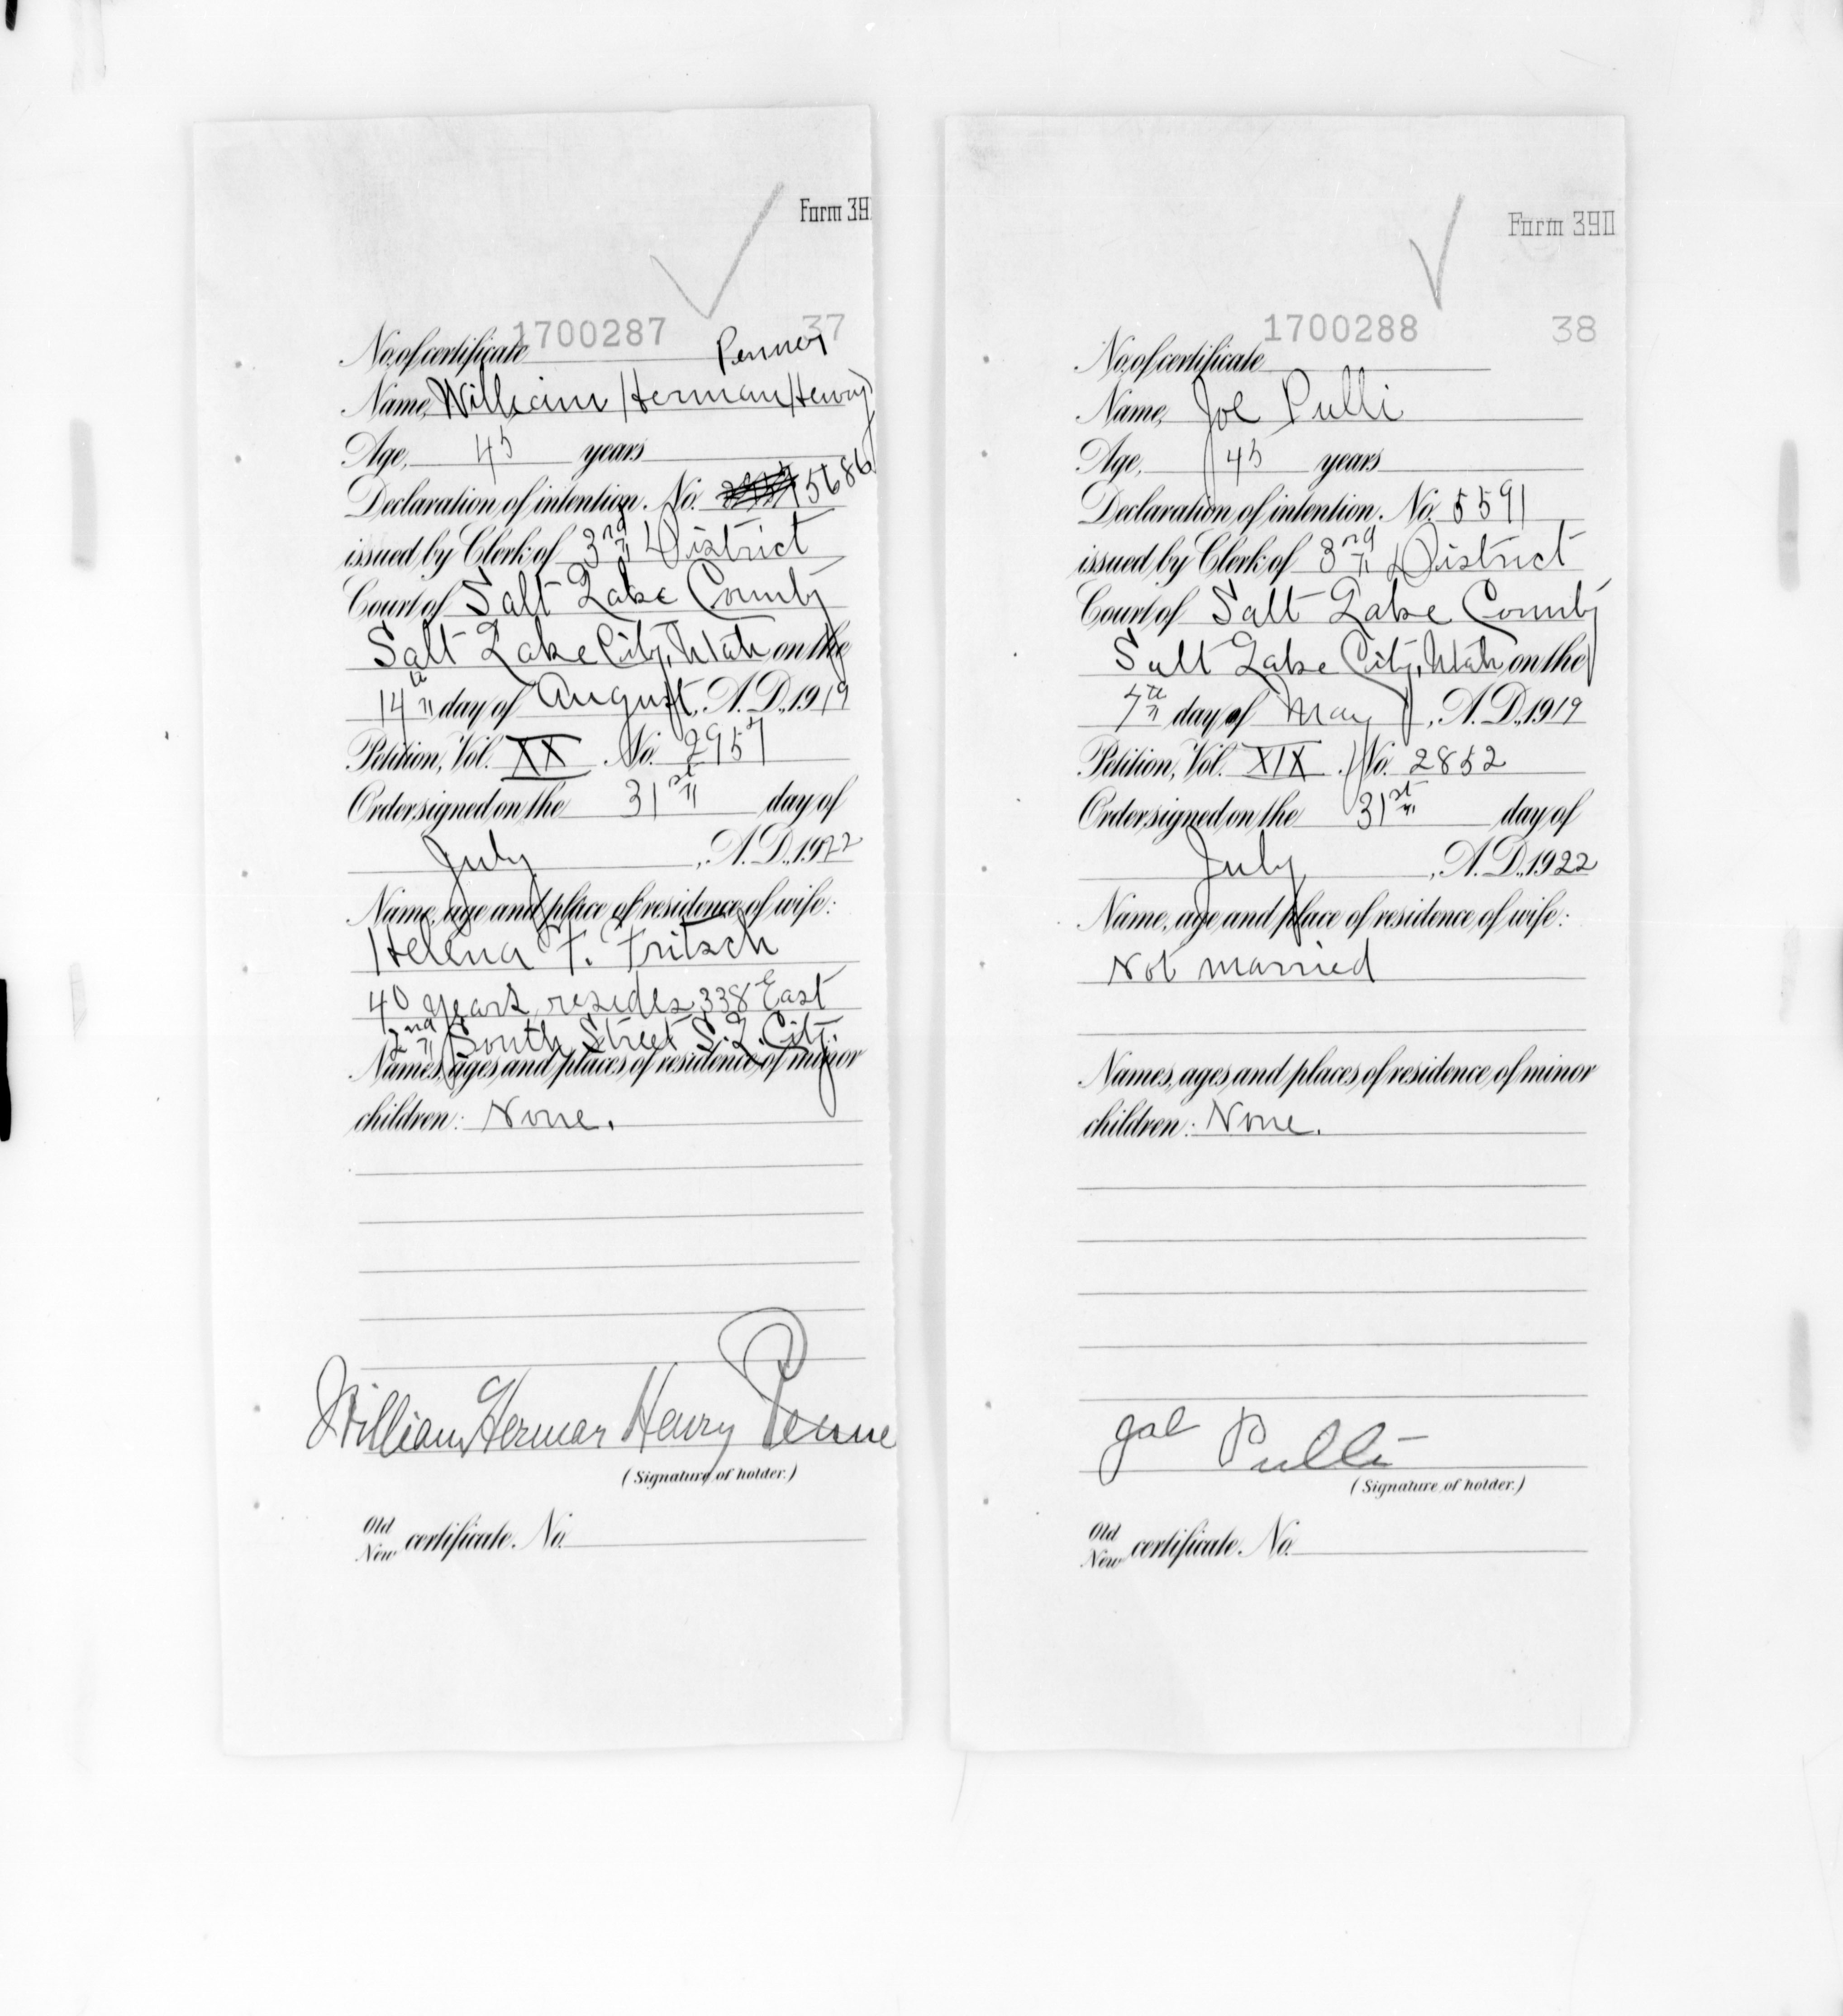 Form 39
1700287 37
No. of certificate
Penney
Name, William Herman Henry
Age, 45 years
Declaration of intention. No. 5686
issued by Clerk of 3rd District
Court of Salt Lake County
Salt Lake City, Utah on the
14th day of August, A. D., 1919
Petition, Vol. XX No. 2957
Order signed on the 31st day of
July, A. D., 1922
Name, age and place of residence of wife:
Helena F. Fritsch
40 years, resides 338 East
2nd South Street S. L. City.
Names, ages and places of residence of minor
children: None.
William Herman Henry Penne
(Signature of holder.)
Old
New certificate. No.
Form 390
1700288 38
No. of certificate
Name, Joe Pulli
Age, 45 years
Declaration of intention. No. 5591
issued by Clerk of 3rd District
Court of Salt Lake County
Salt Lake City, Utah on the
7th day of May, A. D., 1919
Petition, Vol. XIX. No. 2852
Order signed on the 31st day of
July, A. D., 1922
Name, age and place of residence of wife:
Not married
Names, ages and places of residence of minor
children: None.
Joe Pulli
(Signature of holder.)
Old
New certificate. No.